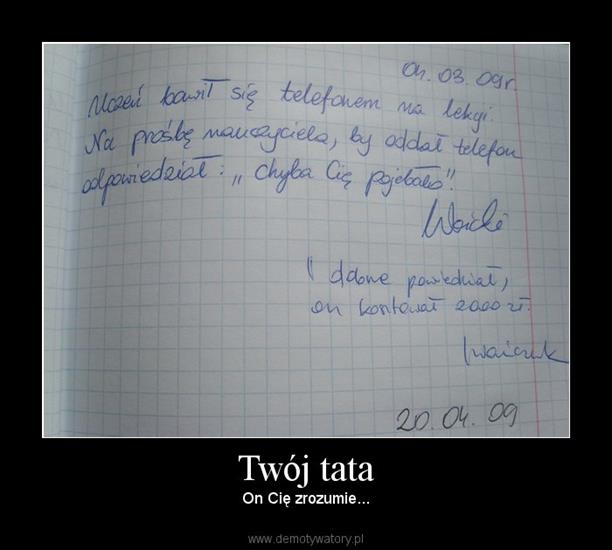 04.03.09r.
Uczeń bawił się telefonem na lekcji.
Na prośbę nauczyciela, by oddał telefon
odpowiedział: „chyba Cię pojebało".
dobrze powiedział,
on kosztował 2000 zł.
20.04.09
Twój tata
On Cię zrozumie...
www.demotywatory.pl